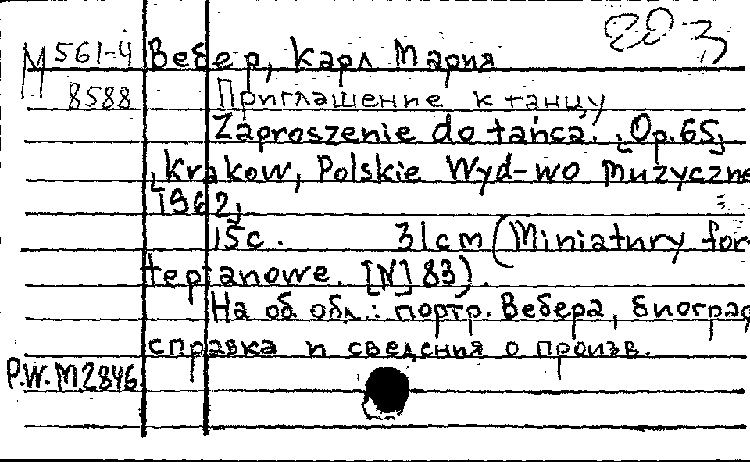 203
М 561-4 Вебер, Карл Мария
8588 Приглашение к танцу
Zaproszenie do tańca. [Op.65]
[Krakow, Polskie Wyd-wo Muzyczne
1962]
15с. 31cm (Miniatury for-
tepianowe. [N] 83).
На об обл.: портр. Вебера, биограф
справка и сведения о произв.
P.W.M 2846